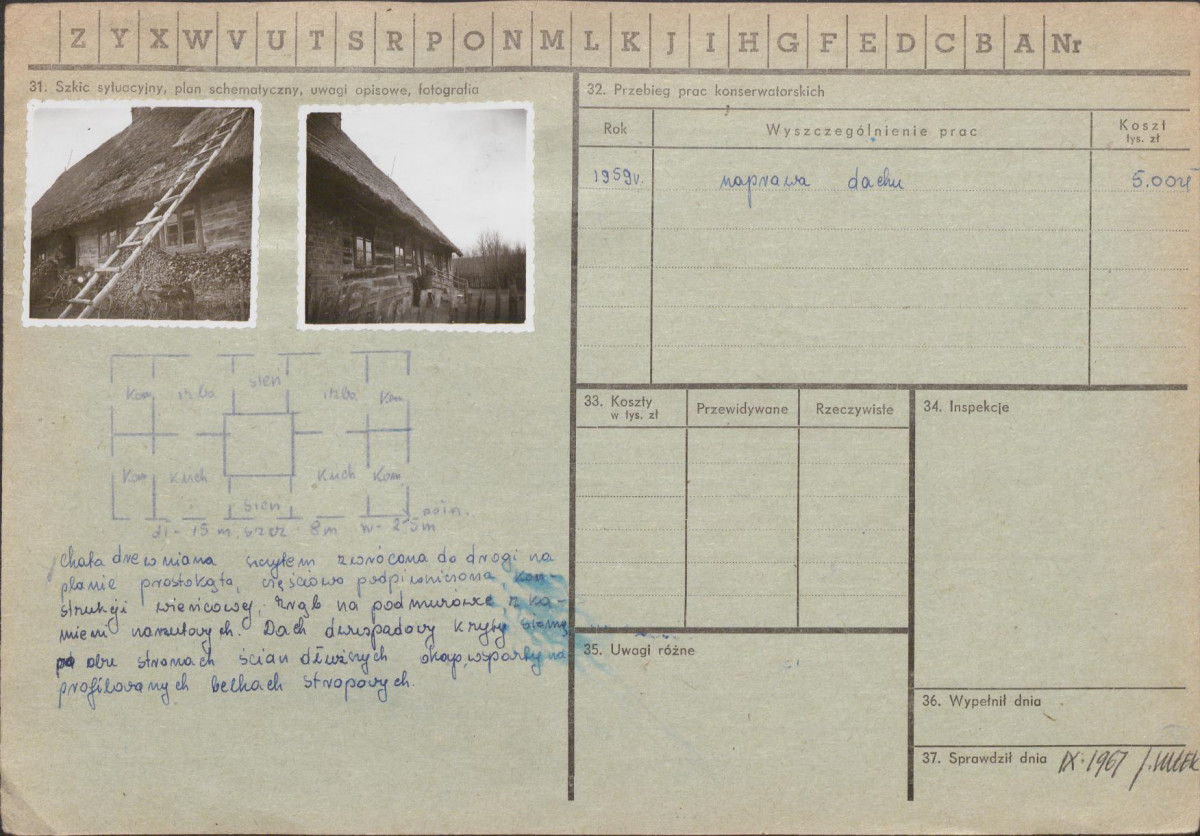 Z Y X W V U T S R P O N M L K J I H G F E D C B A Nr
31. Szkic sytuacyjny, plan schematyczny, uwagi opisowe, fotografia
Kom. izba sień izba Kom
Kom Kuch Kuch Kom
sień
dł - 15 m, szer 8 m w - 2 5 m
chata drewniana szczytem zwrócona do drogi na
planie prostokąta, częściowo podpiwniczona, kon-
strukcji wieńcowej, zrąb na podmurówce z ka-
mieni narzutowych. Dach dwuspadowy kryty słomą
po obu stronach ścian dłużnych okap wsparty na
profilowanych belkach stropowych.
32. Przebieg prac konserwatorskich
Rok Wyszczególnienie prac Koszt tys. zł
1959r. naprawa dachu 5.00
33. Koszty w tys. zł Przewidywane Rzeczywiste
34. Inspekcje
35. Uwagi różne
36. Wypełnił dnia
37. Sprawdził dnia IX. 1967